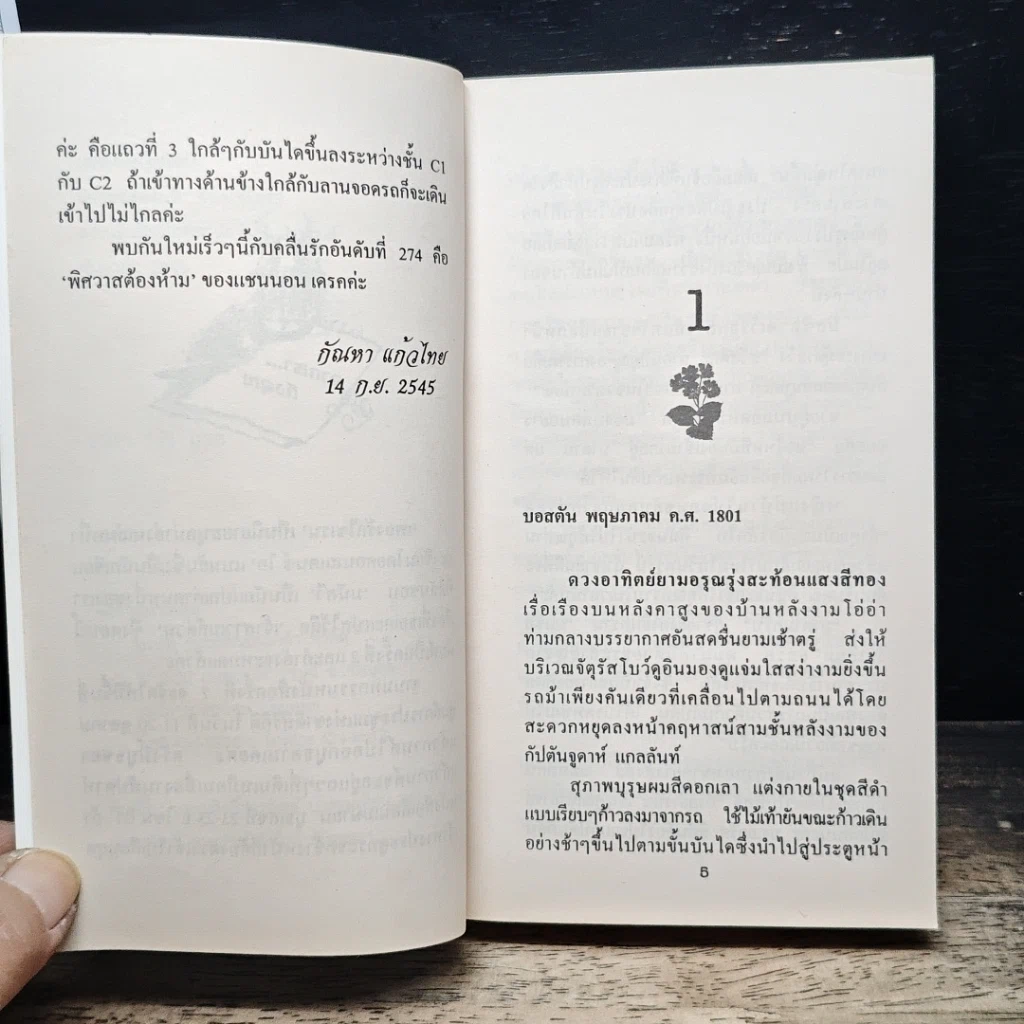 ค่ะ คือแถวที่ 3 ใกล้ๆกับบันไดขึ้นลงระหว่างชั้น C1
กับ C2 ถ้าเข้าทางด้านข้างใกล้กับลานจอดรถก็จะเดิน
เข้าไปไม่ไกลค่ะ
พบกันใหม่เร็วๆนี้กับคลื่นรักอันดับที่ 274 คือ
‘พิศวาสต้องห้าม’ ของแชนนอน เดรคค่ะ
กัณหา แก้วไทย
14 ก.ย. 2545
1
บอสตัน พฤษภาคม ค.ศ. 1801
ดวงอาทิตย์ยามอรุณรุ่งสะท้อนแสงสีทอง
เรื่อเรืองบนหลังคาสูงของบ้านหลังงามโอ่อ่า
ท่ามกลางบรรยากาศอันสดชื่นยามเช้าตรู่ ส่งให้
บริเวณจัตุรัสโบว์ดูอินมองดูแจ่มใสสง่างามยิ่งขึ้น
รถม้าเพียงคันเดียวที่เคลื่อนไปตามถนนได้โดย
สะดวกหยุดลงหน้าคฤหาสน์สามชั้นหลังงามของ
กัปตันจูดาห์ แกลลันท์
สุภาพบุรุษผมสีดอกเลา แต่งกายในชุดสีดำ
แบบเรียบๆก้าวลงมาจากรถ ใช้ไม้เท้ายันขณะก้าวเดิน
อย่างช้าๆขึ้นไปตามขั้นบันไดซึ่งนำไปสู่ประตูหน้า
5